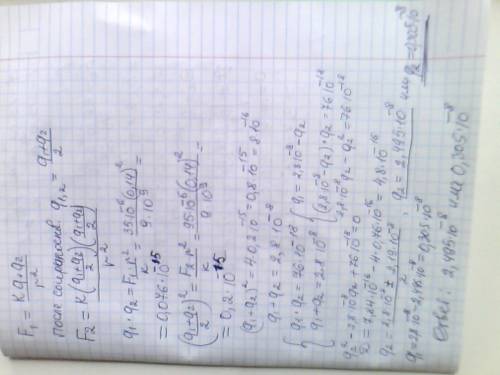 F₁ = Kq₁q₂/r²
После соприкоснов. q₁,₂ = (q₁+q₂)/2
F₂ = K((q₁+q₂)/2)((q₁+q₂)/2)/r²
q₁·q₂ = F₁·r²/k = 35·10⁻⁶(0,14)²/9·10⁹ =
= 0,076·10⁻¹⁵
((q₁+q₂)/2)² = F₂·r²/k = 95·10⁻⁶(0,14)²/9·10⁹ =
= 0,2·10⁻¹⁵
(q₁+q₂)² = 4·0,2·10⁻¹⁵ = 0,8·10⁻¹⁵ = 8·10⁻¹⁶
q₁+q₂ = 2,8·10⁻⁸
{ q₁·q₂ = 76·10⁻¹⁸ { q₁ = 2,8·10⁻⁸ - q₂
q₁+q₂ = 2,8·10⁻⁸ (2,8·10⁻⁸-q₂)·q₂ = 76·10⁻¹⁸
2,8·10⁻⁸q₂ - q₂² = 76·10⁻¹⁸
q₂² - 2,8·10⁻⁸q₂ + 76·10⁻¹⁸ = 0
D = 7,84·10⁻¹⁶ - 4·0,76·10⁻¹⁶ = 4,8·10⁻¹⁶
q₂ = (2,8·10⁻⁸ ± 2,19·10⁻⁸)/2, q₂ = 2,495·10⁻⁸ или q₂ = 0,305·10⁻⁸
q₁ = 2,8·10⁻⁸ - 2,495·10⁻⁸ = 0,305·10⁻⁸
Ответ: 2,495·10⁻⁸ или 0,305·10⁻⁸